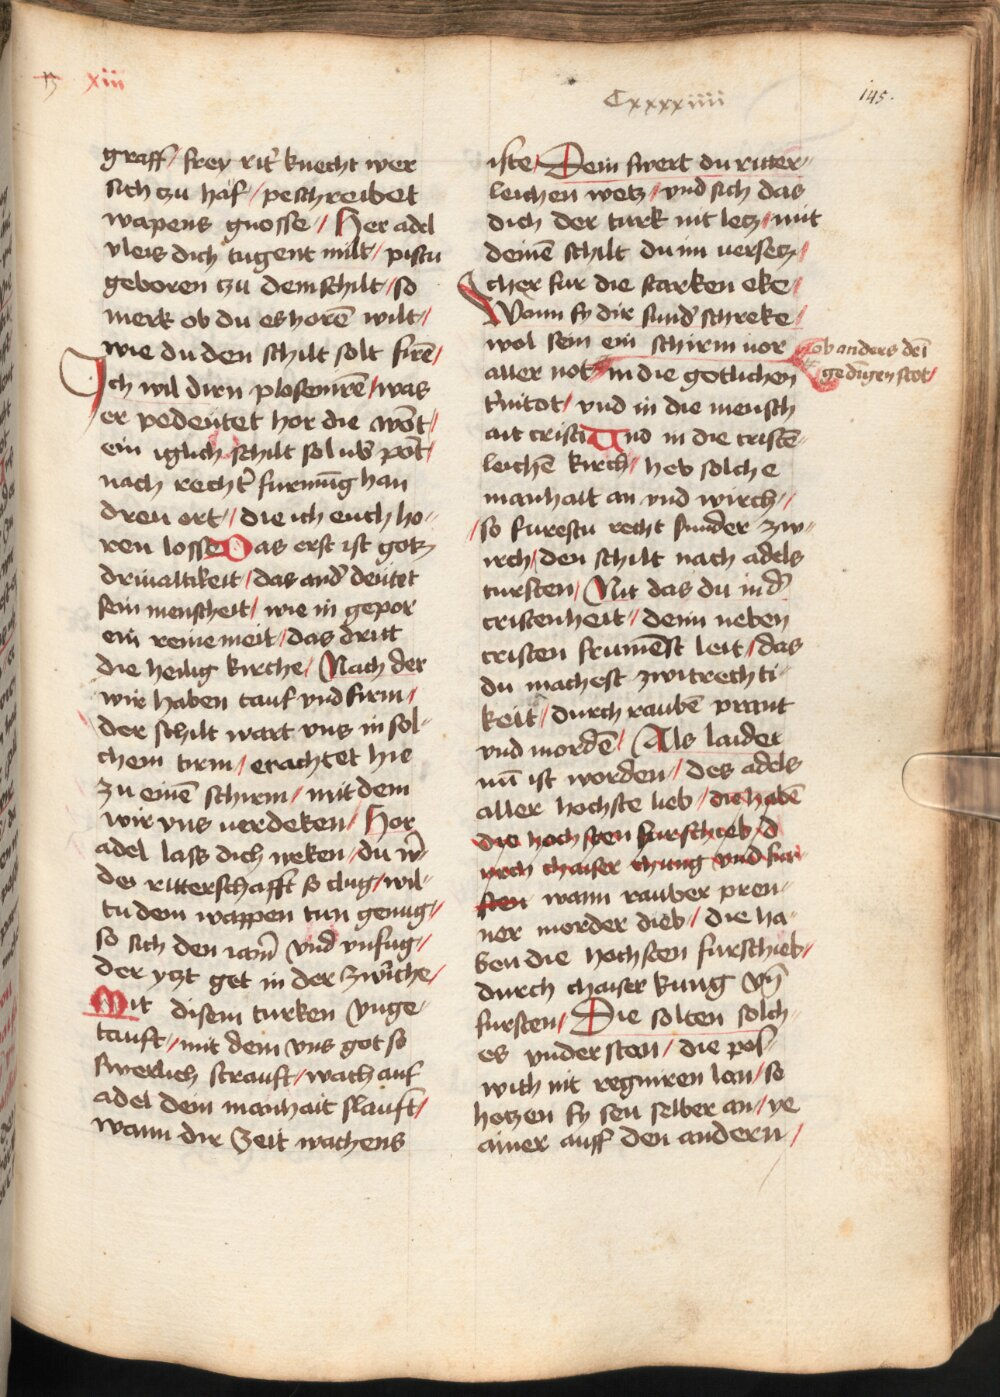 xiii
Cxxxxiiii
145.
graff / frey rit' knecht wer
sich czu haf / peschreibet
wapens gnosse / Her adel
vleis dich tugent milt / pistu
geboren czu dem schilt / so
merk ob du es horē wilt /
wie du den schilt solt firē /
Ich wil dirn plosenirē / was
er pedeutet hor die wōt /
ein iglich schilt sol
nach recht' furmūg han
dreu ort / die ich euch ho-
ren losse Das erst ist gotz
driualtikeit / das and' deutet
sein menscheit / wie in gepor
ein reine meit / das dritt
die heilig kirche / Nach der
wir haben tauf vnd firm /
der schilt wart vns in sol-
chem tirm / erachtet hie
zu einē schirm / mit dem
wir vns verdeken / Hor
adel lass dich neken / du
der ritterschafft so clug / wil-
tu dem wappen tun genug /
so sich den vnd vnfug /
der yczt get in der zwirche /
Mit disem turken vnge-
tauft / mit dem vns got so
swerlich strauft / wach auf
adel dein manhait slauft /
wann dir Zeit wachens
iste / Dein swert du ritter-
leichen wetz / vnd sich das
dich der turk nit letz / mit
deinē schilt du im versecz /
cher fur die starken eke /
Wann sy dir sund' schreke /
wol sein ein schirm vor
aller not / in die gotlichen
t'nitot / vnd in die mensch
ait cristi Vnd in die cristē-
leichē kirch / heb solche
manhait an vnd wirch /
/ so furestu recht sunder zw-
irch / den schilt nach adels
tursten / Nit das du in d'
cristenheit / deim neben
cristen frumēst leit / das
du machest zwitrechti-
keit / durch raubē prant
vnd mordē / Als laidet
nū ist worden / des adels
aller hochste lieb / die habē
die hochsten furschieb / d
urch chaiser chung vnd fur
sten wann rauber pren-
ner morder dieb / die ha-
ben die hochsten furschieb /
durch chaiser kung vn̄
fursten / Die solten solch-
es vndersteen / die pos'
wicht nit regniren lan / so
hetzen sy seu selber an / ye
ainer auff den andern /
ob anders dei
gedingen stot /